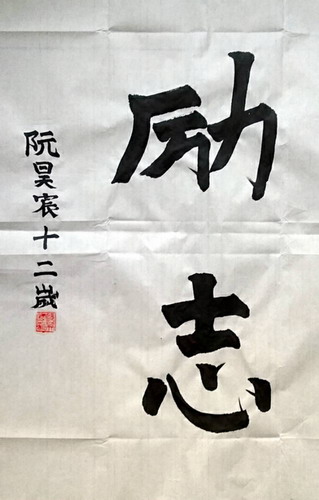 励志
阮昊宸十二歲